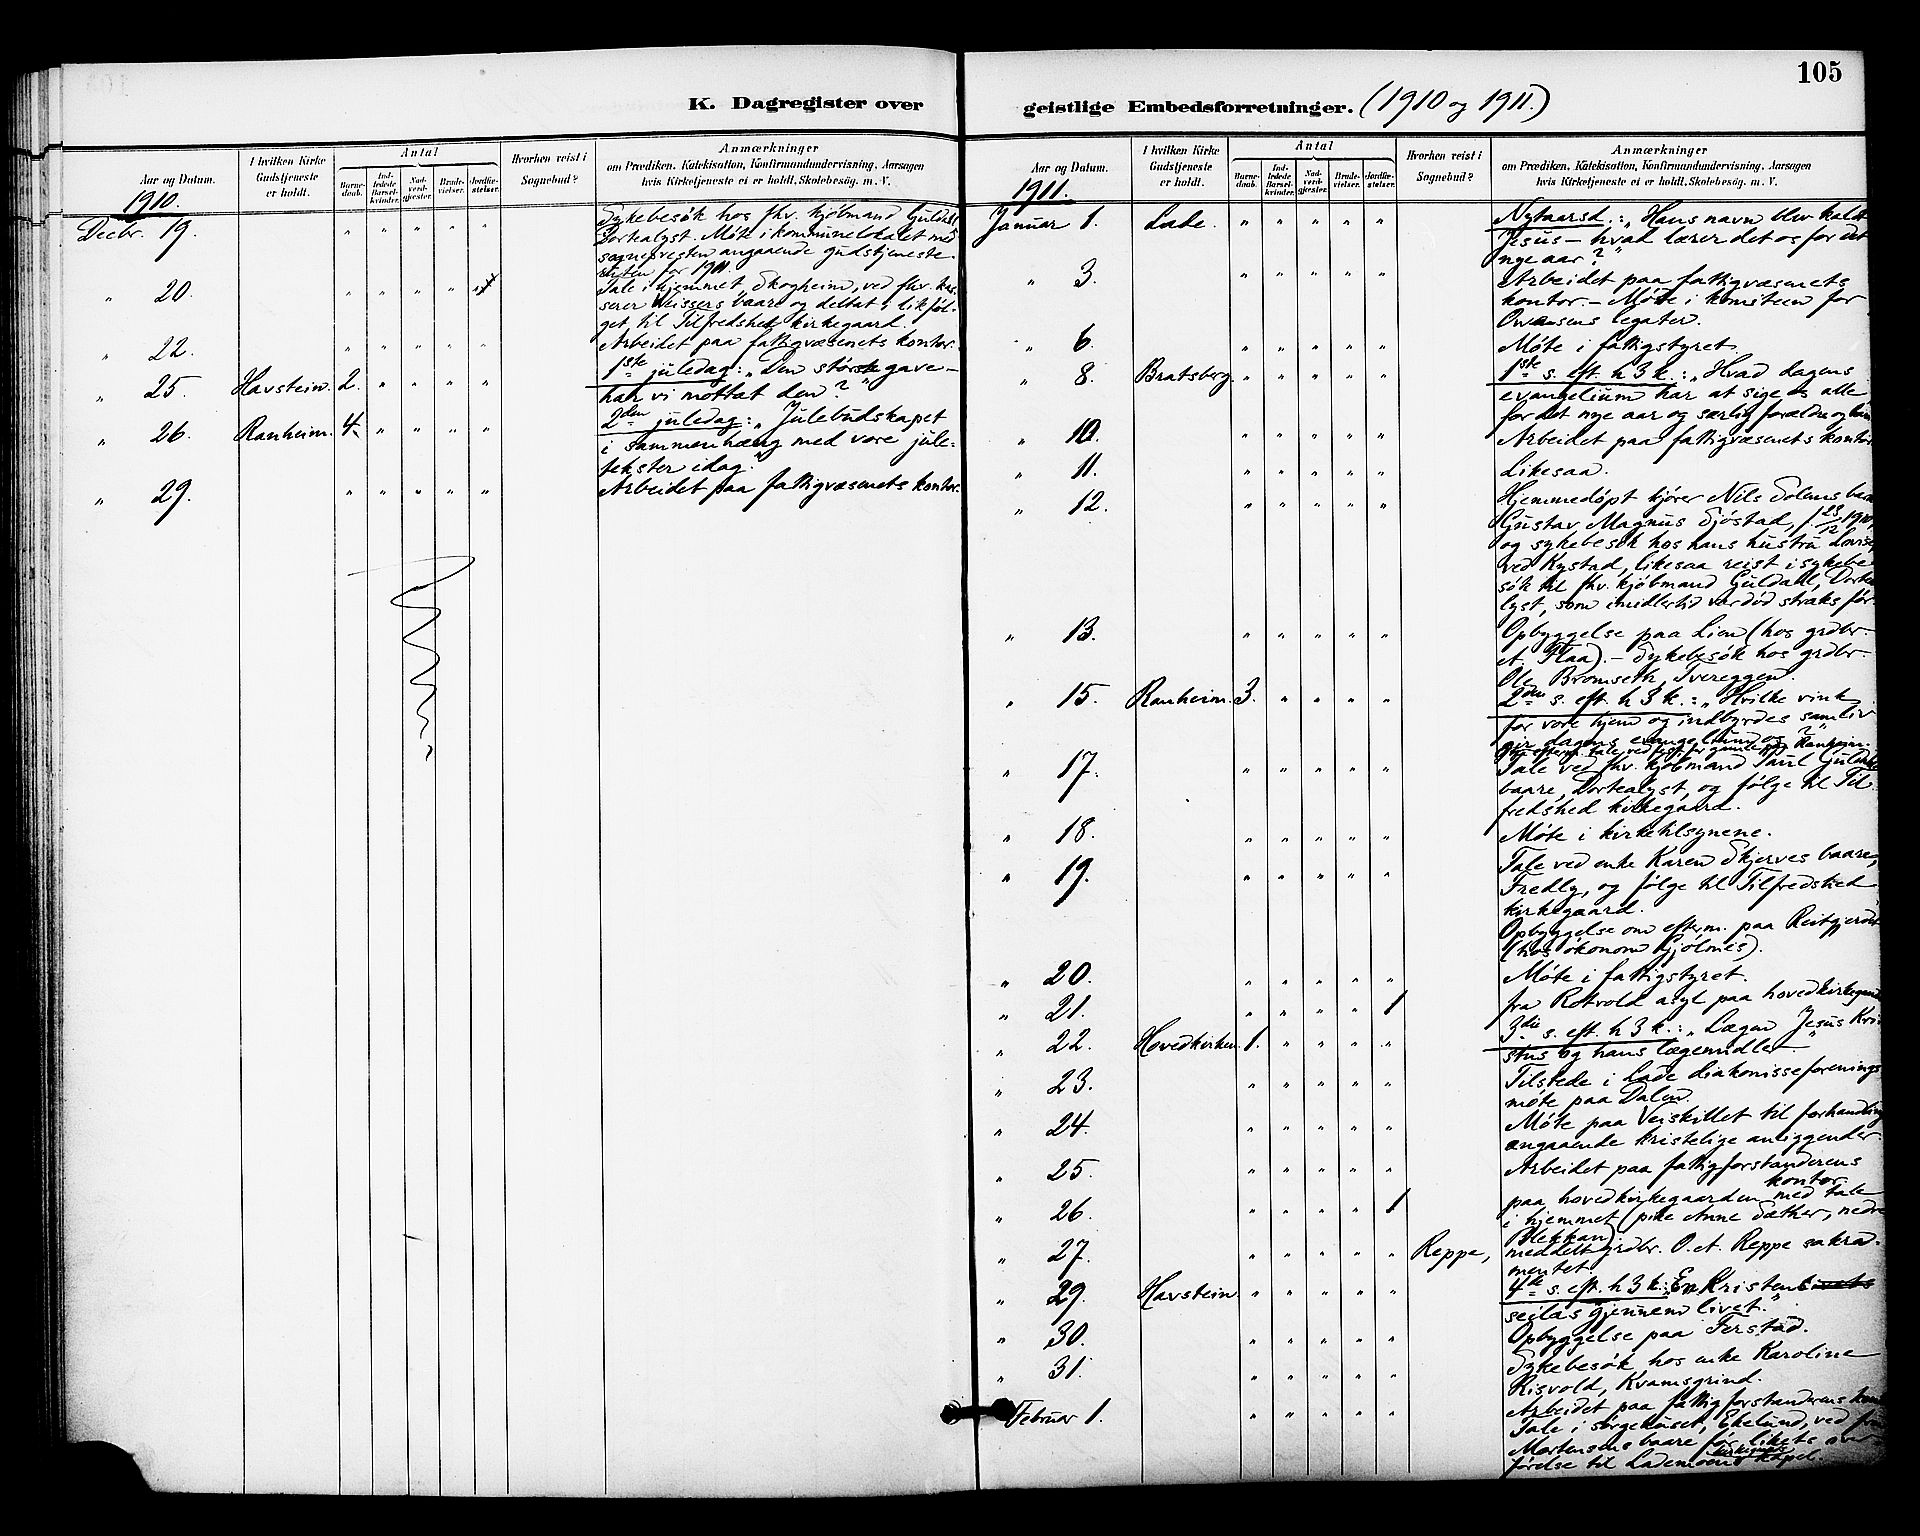 105
K. Dagregister over geistlige Embedsforretninger. (1910 og 1911.)
Aar og Datum.
I hvilken Kirke Gudstjeneste er holdt.
Antal
Barnedaab.
Indledede Barselkvinder.
Nadverdgjester.
Brudevielser.
Jordfæstelser.
Hvorhen reist i Sognebud?
Anmærkninger
om Prædiken, Katekisation, Konfirmandundervisning, Aarsagen
hvis Kirketjeneste ei er holdt, Skolebesög, m. V.
1910.
Decbr. 19. " " " " " Sykebesök hos fhv. kjöbmand Guldahl
Dortealyst. Möte i kommunelokalet med
sognepresten angaaende gudstjeneste-
listen for 1911.
" 20. " " " " Tale i hjemmet, Skogheim, ved fhv. kas-
serer Weissers baare og deltat i likföl-
get til Tilfredshed kirkegaard.
" 22. " " " " " Arbeidet paa fattigvæsenets kontor.
" 25. Havstein. 2. " " " " 1ste juledag: „Den störste gave –
har vi mottat den?"
" 26. Ranheim. 4. " " " " 2den juledag: „Julebudskapet
i sammenhæng med vore jule-
tekster idag."
" 29. " " " " " Arbeidet paa fattigvæsenets kontor.
Aar og Datum.
I hvilken Kirke Gudstjeneste er holdt.
Antal
Barnedaab.
Indledede Barselkvinder.
Nadverdgjester.
Brudevielser.
Jordfæstelser.
Hvorhen reist i Sognebud?
Anmærkninger
om Prædiken, Katekisation, Konfirmandundervisning, Aarsagen
hvis Kirketjeneste ei er holdt, Skolebesög, m. V.
1911.
Januar 1. Lade. " " " " " Nytaarsd.: „Hans navn blev kaldt
Jesus – hvad lærer det os for det
nye aar?"
" 3. " " " " " Arbeidet paa fattigvæsenets
kontor. – Möte i komiteen for
Owensens legater.
" 6. " " " " " Möte i fattigstyret
" 8. Bratsberg. " " " " " 1ste s. eft. h 3 k.: „Hvad dagens
evangelium har at sige os alle
for det nye aar og særlig forældre og börn
" 10. " " " " " Arbeidet paa fattigvæsenets kontor
" 11. " " " " " Likesaa.
" 12. " " " " " Hjemmedöpt kjörer Nils Solems barn
Gustav Magnus Sjöstad, f. 23/12 1910,
og sykebesök hos hans hustru Lovise,
ved Kystad, likesaa reist i sykebe-
sök til fhv. kjöbmand Guldahl, Dortea-
lyst, som imidlertid var död straks för.
" 13. " " " " " Opbyggelse paa Lien (hos grdbr.
A. Flaa). – Sykebesök hos grdbr.
Ole Bromseth, Tvereggen.
" 15. Ranheim. 3. " " " " 2den s. eft. h 3 k.: „Hvilke vink
for vore hjem og indbyrdes samliv
gir dagens evangelium os?"
" 17. " " " " " Tale ved fhv. kjöbmand Paul Guldahls
baare, Dortealyst, og fölge til Til-
fredshed kirkegaard.
" 18. " " " " " Möte i kirketilsynene.
" 19. " " " " " Tale ved enke Karen Skjerves baare,
Fredly, og fölge til Tilfredshed
kirkegaard.
Opbyggelse om efterm. paa Reitgjerdet
(hos ökonom Gjölmes).
" 20. " " " " " Möte i fattigstyret.
" 21. " " " " 1 fra Rotvold asyl paa hovedkirkegaarden
" 22. Hovedkirken. 1. " " " " 3die s. eft. h 3 k.: „Lægen Jesus Kri-
stus og hans lægemidler."
" 23. " " " " " Tilstede i Lade diakonisseforenings
möte paa Dalen.
" 24. " " " " " Möte paa Veiskillet til forhandling
angaaende kristelige anliggender.
" 25. " " " " " Arbeidet paa fattigforstanderens
kontor
" 26. " " " " 1 paa hovedkirkegaarden med tale
i hjemmet (pike Anne Sæther, nedre
Blekkan)
" 27. " " " " " Reppe, meddelt grdbr. O. A. Reppe sakra-
mentet.
" 29. Havstein. " " " " " 4de s. eft. h 3 k.: „En kristens
seilas gjennem livet."
" 30. " " " " " Opbyggelse paa Ferstad.
" 31. " " " " " Sykebesök hos enke Karoline
Risvold, Kvamsgrind.
Februar 1. " " " " " Arbeidet paa fattigforstanderens
Tale i sörgehuset, Ekelund, ved
Mortensens baare för likets over-
förelse til Lademoens kirkegaards kapel.